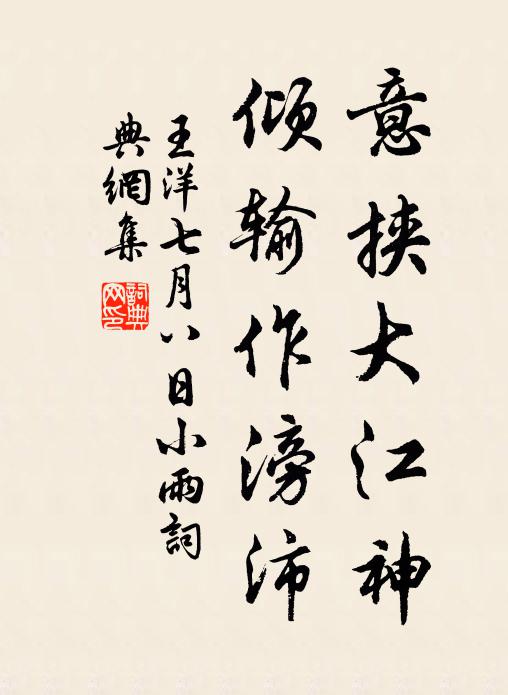 意挾大江神
傾输作滂沛
王洋七月八日小雨詞
典網集
詞典网印